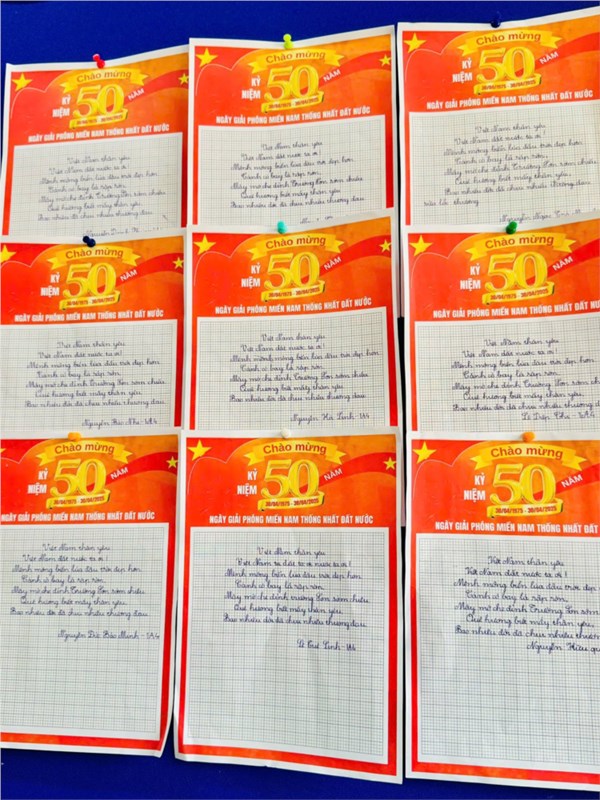 Chào mừng
KỶ NIỆM
50
NĂM
NGÀY GIẢI PHÓNG MIỀN NAM THỐNG NHẤT ĐẤT NƯỚC
Việt Nam thân yêu
Việt Nam đất nước ta ơi!
Mênh mông biển lúa đâu trời đẹp hơn
Cánh cò bay lả rập rờn,
Mây mờ che đỉnh Trường Sơn sớm chiều
Quê hương biết mấy thân yêu
Bao nhiêu đời đã chịu nhiều thương đau
Chào mừng
KỶ NIỆM
50
NĂM
30/04/1975 - 30/04/2025
NGÀY GIẢI PHÓNG MIỀN NAM THỐNG NHẤT ĐẤT NƯỚC
Việt Nam thân yêu
Việt Nam đất nước ta ơi!
Mênh mông biển lúa đâu trời đẹp hơn
Cánh cò bay lả rập rờn,
Mây mờ che đỉnh Trường Sơn sớm chiều
Quê hương biết mấy thân yêu
Bao nhiêu đời đã chịu nhiều thương đau
Chào mừng
KỶ NIỆM
50
NĂM
30/04/1975 - 30/04/2025
NGÀY GIẢI PHÓNG MIỀN NAM THỐNG NHẤT ĐẤT NƯỚC
Việt Nam thân yêu
Việt Nam đất nước ta ơi!
Mênh mông biển lúa đâu trời đẹp hơn
Cánh cò bay lả rập rờn,
Mây mờ che đỉnh Trường Sơn sớm chiều
Quê hương biết mấy thân yêu
Bao nhiêu đời đã chịu nhiều
thương
Nguyễn Ngọc
Chào mừng
KỶ NIỆM
50
NĂM
30/04/1975 - 30/04/2025
NGÀY GIẢI PHÓNG MIỀN NAM THỐNG NHẤT ĐẤT NƯỚC
Việt Nam thân yêu
Việt Nam đất nước ta ơi!
Mênh mông biển lúa đâu trời đẹp hơn
Cánh cò bay lả rập rờn,
Mây mờ che đỉnh Trường Sơn sớm chiều
Quê hương biết mấy thân yêu,
Bao nhiêu đời đã chịu nhiều thương đau
Nguyễn Bảo Nhi - 1A4
Chào mừng
KỶ NIỆM
50
NĂM
30/04/1975 - 30/04/2025
NGÀY GIẢI PHÓNG MIỀN NAM THỐNG NHẤT ĐẤT NƯỚC
Việt Nam thân yêu
Việt Nam đất nước ta ơi!
Mênh mông biển lúa đâu trời đẹp hơn
Cánh cò bay lả rập rờn,
Mây mờ che đỉnh Trường Sơn sớm chiều
Quê hương biết mấy thân yêu
Bao nhiêu đời đã chịu nhiều thương đau
Nguyễn Hà Linh - 1A4
Chào mừng
KỶ NIỆM
50
NĂM
30/04/1975 - 30/04/2025
NGÀY GIẢI PHÓNG MIỀN NAM THỐNG NHẤT ĐẤT NƯỚC
Việt Nam thân yêu
Việt Nam đất nước ta ơi!
Mênh mông biển lúa đâu trời đẹp hơn
Cánh cò bay lả rập rờn,
Mây mờ che đỉnh Trường Sơn sớm chiều
Quê hương biết mấy thân yêu
Bao nhiêu đời đã chịu nhiều thương đau
Chào mừng
KỶ NIỆM
50
NĂM
30/04/1975 - 30/04/2025
NGÀY GIẢI PHÓNG MIỀN NAM THỐNG NHẤT ĐẤT NƯỚC
Việt Nam thân yêu
Việt Nam đất nước ta ơi!
Mênh mông biển lúa đâu trời đẹp hơn
Cánh cò bay lả rập rờn,
Mây mờ che đỉnh Trường Sơn sớm chiều
Quê hương biết mấy thân yêu
Bao nhiêu đời đã chịu nhiều thương đau
Nguyễn Đức Bảo Minh - 1A4
Chào mừng
KỶ NIỆM
50
NĂM
30/04/1975 - 30/04/2025
NGÀY GIẢI PHÓNG MIỀN NAM THỐNG NHẤT ĐẤT NƯỚC
Việt Nam thân yêu
Mênh mông biển lúa đâu trời đẹp hơn
Cánh cò bay lả rập rờn,
Mây mờ che đỉnh trường Sơn sớm chiều
Quê hương biết mấy thân yêu
Bao nhiêu đời đã chịu nhiều thương đau
Linh - 1A4
Chào mừng
KỶ NIỆM
50
NĂM
30/04/1975 - 30/04/2025
NGÀY GIẢI PHÓNG MIỀN NAM THỐNG NHẤT ĐẤT
Việt Nam thân yêu
Việt Nam đất nước ta ơi!
Mênh mông biển lúa đâu trời đẹp
Cánh cò bay lả rập rờn,
Mây mờ che đỉnh Trường Sơn sớm
Quê hương biết mấy thân yêu,
Bao nhiêu đời đã chịu nhiều
Nguyễn Hữu